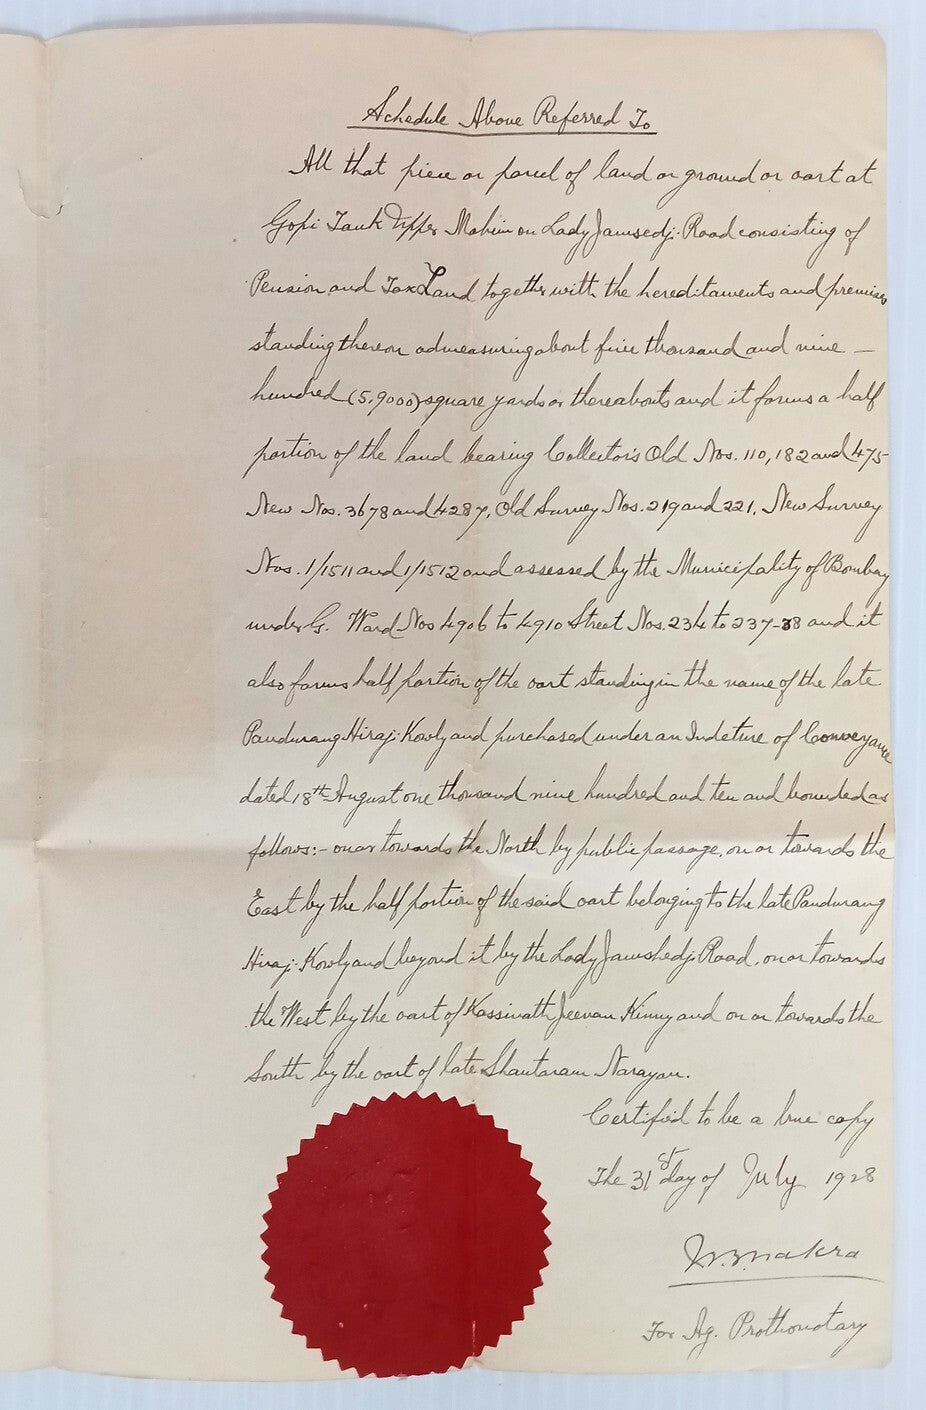 Schedule Above Referred To
All that piece or parcel of land or ground or oart at
Gopi Tank Upper Mahim on Lady Jamsedji Road consisting of
Pension and Tax Land together with the hereditaments and premises
standing thereon admeasuring about five thousand and nine —
hundred (5,9000) square yards or thereabouts and it forms a half
portion of the land bearing Collector's Old Nos. 110, 182 and 475
New Nos. 3678 and 4287, Old Survey Nos. 219 and 221, New Survey
Nos. 1/1511 and 1/1512 and assessed by the Municipality of Bombay
under G. Ward Nos 4906 to 4910 Street Nos. 234 to 237-38 and it
also forms half portion of the oart standing in the name of the late
Pandurang Hiraji Kowly and purchased under an Indeture of Conveyance
dated 18th August one thousand nine hundred and ten and bounded as
follows:- on or towards the North by public passage, on or towards the
East by the half portion of the said oart belonging to the late Pandurang
Hiraji Kowly and beyond it by the Lady Jamshedji Road, on or towards
the West by the oart of Kassinath Jeevan Kinny and on or towards the
South by the oart of late Shantaram Narayan.
Certified to be a true copy
The 31st day of July 1928
For Ag. Prothonotary